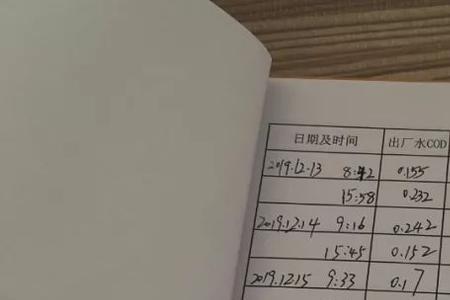 日期及时间 出厂水COD
2019.12.13 8:42 0.155
15:58 0.232
2019.12.14 9:16 0.242
15:45 0.152
2019.12.15 9:33 0.17